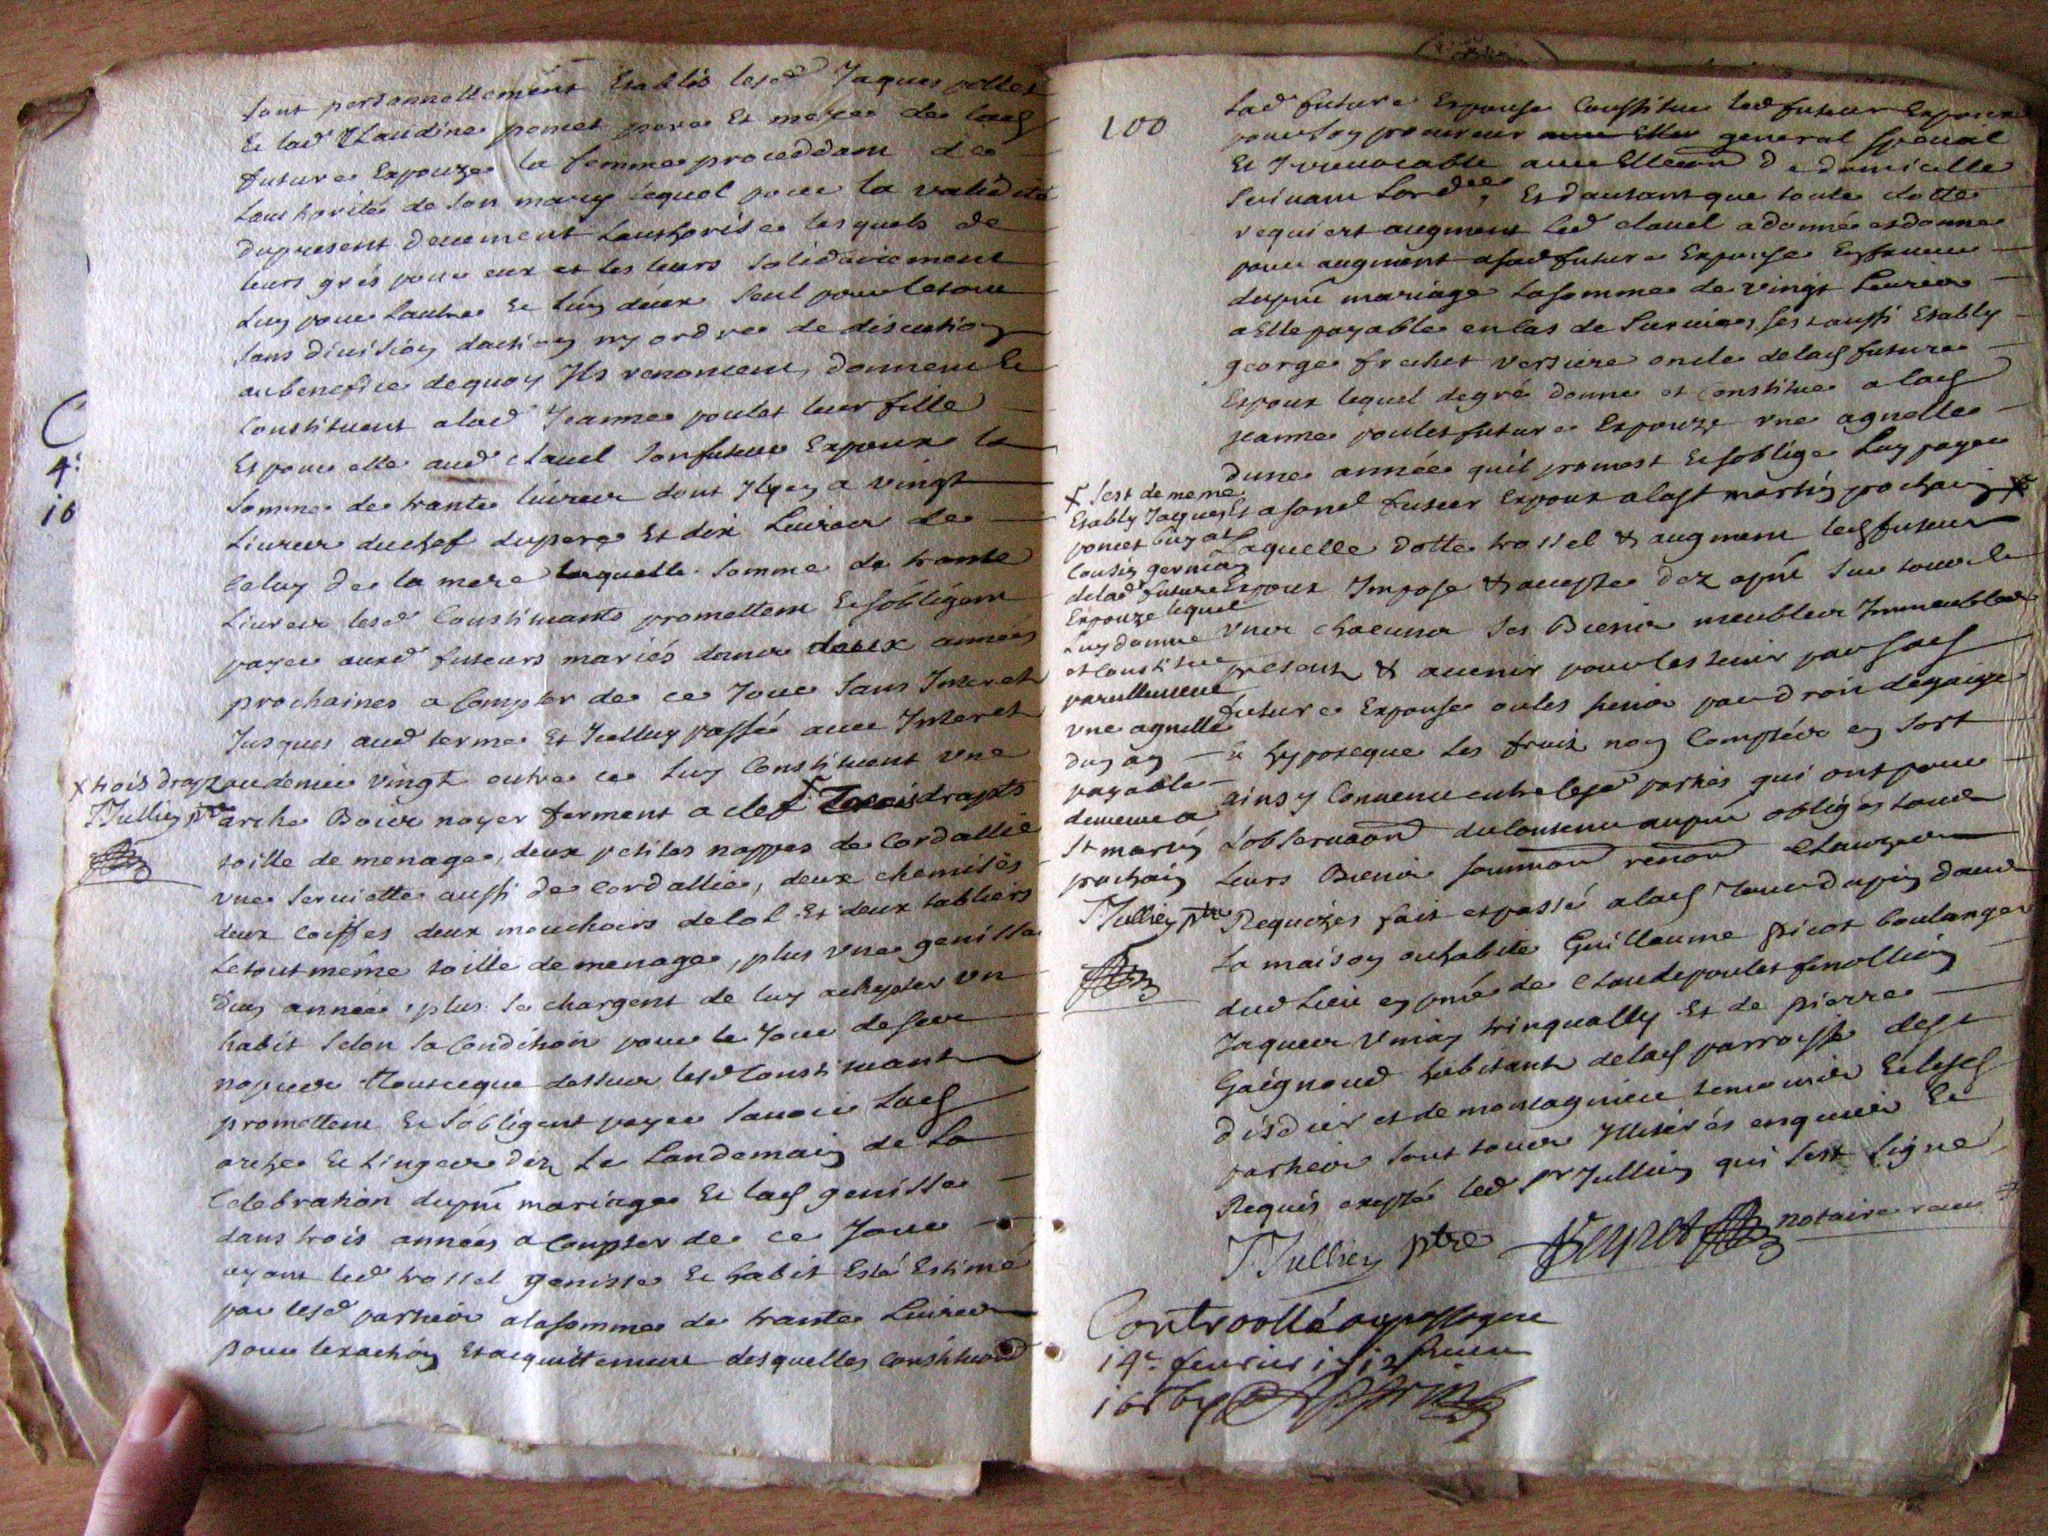 sont personnellement Establis lesd Jaques pollet
Et lad Claudine pomet pere Et mere de lad
future Expouze la femme proceddam de
Lauthorité de son mary lequel pour la validité
dupresent deuement Lauthorise lesquels de
leurs grés pour eux et les leurs solidairement
Luy pour Lautre Et luy deux seul pour letout
sans division daction ny ordre de discution
aubenefice dequoy Ils renoncent, donnent Et
Constituent alad Jeanne poulet leur fille
Et pour elle aud clauel son futeur Expoux la
somme de trante liures dont Ilyen a vingt
Liures duchef dupere Et dix Liures de
Celuy de la mere laquelle somme de trante
Liures lesd Constituants promettent Et sobligent
payer auxd futeurs mariés dans deux années
prochaines a Compter de ce Jour sans Interet
Jusques aud terme Et Icelluy passé auec Interet
audenier vingt outre ce luy Constituent vne
x trois drapz
JJullien ptre
arche Bois noyer fermant a clef x drapts
toille de menage, deux petites nappes de Cordallie
vne seruiette aussi de cordallie, deux chemises
deux coiffes deux mouchoirs de col Et deux tabliers
Letout même toille de menage, plus vne genisse
dun année, plus se chargent de luy achepter vn
habit selon sa condition pour le Jour de ses
nopces toutceque dessus lesd Constituant
promettent Et sobligent payer sauoir Lad
arche Et Linges dez Le Landemain de La
Celebration dupnt mariage Et lad genisse
dans trois années a Compter de ce Jour
ayant led trossel genisse Et habit Esté Estimé
par lesd parties alasomme de trante Liures
pour lexaction Et acquittement desquelles constituons
100
Lad future Expouse Constitue led futeur Expoux
pour son procureur general special
Et Irreuocable auec Ellection de domicille
suiuant Lordce, Et dautant que toute dotte
requiert augment led clauel a donné et donne
pour augment asad future Expouse Enfaueur
dupnt mariage Lasomme de vingt Liures
a Elle payable en cas de suruie, sest aussi Estably
george frechet verriere oncle delad future
Expoux lequel degré donne et Constitue alad
Jeanne poulet future Expouze vne agnelle
dune année quil promest Et soblige Luy payer
Et asond futeur Expoux alast martin prochain x
x sest de meme
Estably Jaques
poncet
Cousin germain
delad future
Expouze lequel
Luy donne
et Constitue
pareillement
vne agnelle
dun an
payable
demeure a
st martin
prochain
JJullien ptre
Laquelle dotte trossel & augment led futeur
Expoux Impose & accepte dez apnt sur tous Et
vns chacuns ses Biens meubles Immeubles
presents & auenir pour les tenir par sad
future Expouse oules siens par droit degaige
& hypoteque les fruits non Comptés en sort
ainsy Conuenu entre lesd parties qui ont pour
Lobseruaon ducontenu aupnt obligés tous
leurs Biens soumon renon clauzes
Requizes fait et passé alad dans
La maison ouhabite Guillaume boulanger
dud Lieu en pnce de Claude poulet
Jaques tringually Et de pierre
Gaignoud habitants delad parroisse dest
disdier et de montagnieu temoins Et lesd
parties sont tous Illiterés enquis Et
Requis excepté led sr Jullien qui sest signé
JJullien ptre notaire
Controollé
14e feurier 1712